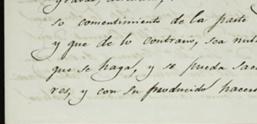 so comentimiento de la parte
y que de lo contrario, sea nul
que se haga, y se pueda sac
res, y con su producido hacer